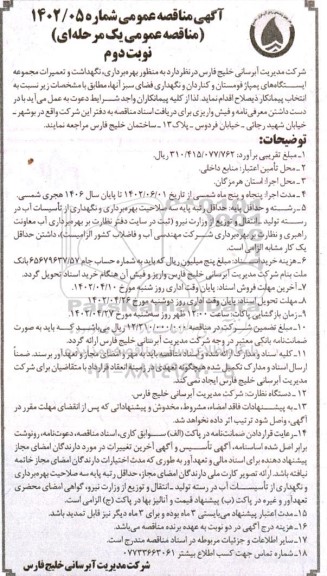 آگهی مناقصه عمومی شماره ۱۴۰۲/۰۵
(مناقصه عمومی یک مرحله‌ای)
نوبت دوم
شرکت مدیریت آبرسانی خلیج فارس در نظر دارد به منظور بهره‌برداری، نگهداشت و تعمیرات مجموعه
ایستگاه‌های پمپاژ فومستان و کناردان و نگهداری فضای سبز آنها، مطابق با مشخصات زیر نسبت به
انتخاب پیمانکار ذیصلاح اقدام نماید. لذا از کلیه پیمانکاران واجد شرایط دعوت به عمل می‌آید با در
دست داشتن معرفی‌نامه و فیش واریزی برای دریافت اسناد مناقصه به دفتر این شرکت واقع در بوشهر -
خیابان شهید رجائی - خیابان فردوس - پلاک ۱۳ - ساختمان خلیج فارس مراجعه نمایند.
توضیحات:
۱- مبلغ تقریبی برآورد: ۳۱۰/۴۱۵/۰۷۷/۷۶۲ ریال.
۲- محل تأمین اعتبار: منابع داخلی.
۳- محل اجرا: استان هرمزگان.
۴- مدت اجرا: پنجاه و پنج ماه شمسی از تاریخ ۱۴۰۲/۰۶/۰۱ تا پایان سال ۱۴۰۶ هجری شمسی.
۵- رشته و حداقل پایه: حداقل رتبه پایه سه صلاحیت بهره‌برداری و نگهداری از تأسیسات آب در
رسته تولید، انتقال و توزیع از وزارت نیرو (ثبت در سایت دفتر نظارت بر بهره‌برداری آب معاونت
راهبری و نظارت بر بهره‌برداری شرکت مهندسی آب و فاضلاب کشور الزامیست)، داشتن حداقل
یک کار مشابه الزامی است.
۶- هزینه خرید اسناد: مبلغ پنج میلیون ریال که باید به شماره حساب جام ۶۵۶۷۹۶۳۷/۵۷ بانک
ملت بنام شرکت مدیریت آبرسانی خلیج فارس واریز و فیش آن هنگام خرید اسناد تحویل گردد.
۷- آخرین مهلت فروش اسناد: پایان وقت اداری روز شنبه مورخ ۱۴۰۲/۰۴/۱۰
۸- مهلت تحویل اسناد: پایان وقت اداری روز دوشنبه مورخ ۱۴۰۲/۰۴/۲۶
۹- زمان بازگشایی پاکات: ساعت ۱۲:۰۰ ظهر روز سه‌شنبه مورخ ۱۴۰۲/۰۴/۲۷
۱۰- مبلغ تضمین شرکت در مناقصه ریال می‌باشد که باید به صورت
ضمانت‌نامه بانکی معتبر در وجه شرکت مدیریت آبرسانی خلیج فارس ارائه گردد.
۱۱- کلیه اسناد و مدارک ارائه شده و اسناد مناقصه باید به مهر و امضای مجاز و تعهدآور برسند. ضمناً
ارسال اسناد و مدارک تکمیل شده هیچگونه تعهدی در زمینه انعقاد قرارداد با متقاضیان برای شرکت
مدیریت آبرسانی خلیج فارس ایجاد نمی‌کند.
۱۲- دستگاه نظارت: شرکت مدیریت آبرسانی خلیج فارس.
۱۳- به پیشنهادات فاقد امضاء، مشروط، مخدوش و پیشنهاداتی که پس از انقضای مهلت مقرر در
آگهی، وصول شود ترتیب اثر داده نخواهد شد.
۱۴- رعایت قرار دادن ضمانت‌نامه در پاکت (الف)، سوابق کاری، اسناد مناقصه، دعوت‌نامه، رونوشت
برابر اصل شده اساسنامه، آگهی تأسیس و آگهی آخرین تغییرات در مورد دارندگان امضای مجاز
پیشنهاد دهنده برای اسناد مالی و تعهدآور به طوری که مدت اختیارات دارندگان امضای مجاز خاتمه
نیافته باشد. ارائه تصویر کارت ملی دارندگان امضای مجاز، حداقل رتبه پایه سه صلاحیت بهره‌برداری
و نگهداری از تأسیسات آب در رسته تولید، انتقال و توزیع از وزارت نیرو، گواهی امضای محضری
تعهدآور و غیره در پاکت (ب) پیشنهاد قیمت و آنالیز بها در پاکت (ج) الزامی است.
۱۵- مدت اعتبار پیشنهاد می‌بایستی ۳ ماه بوده و برای ۳ ماه دیگر نیز قابل تمدید باشد.
۱۶- هزینه درج آگهی در دو نوبت به عهده برنده مناقصه می‌باشد.
۱۷- سایر اطلاعات و جزئیات مربوطه در اسناد مناقصه مندرج است.
۱۸- شماره تماس جهت کسب اطلاع بیشتر ۰۷۷۳۳۶۶۳۰۶۱
شرکت مدیریت آبرسانی خلیج فارس